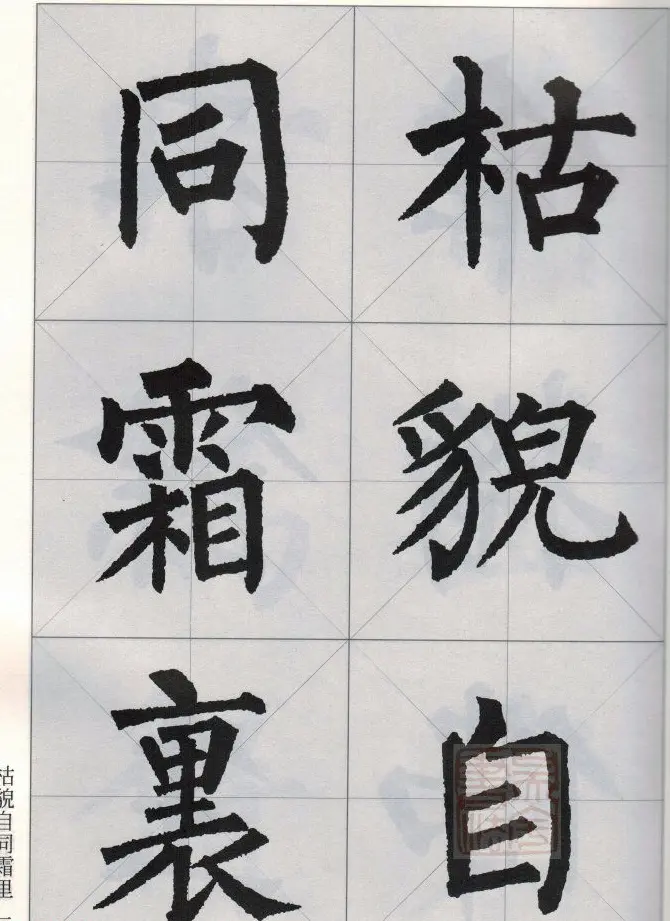 枯貌自
同霜裏
枯貌自同霜里一